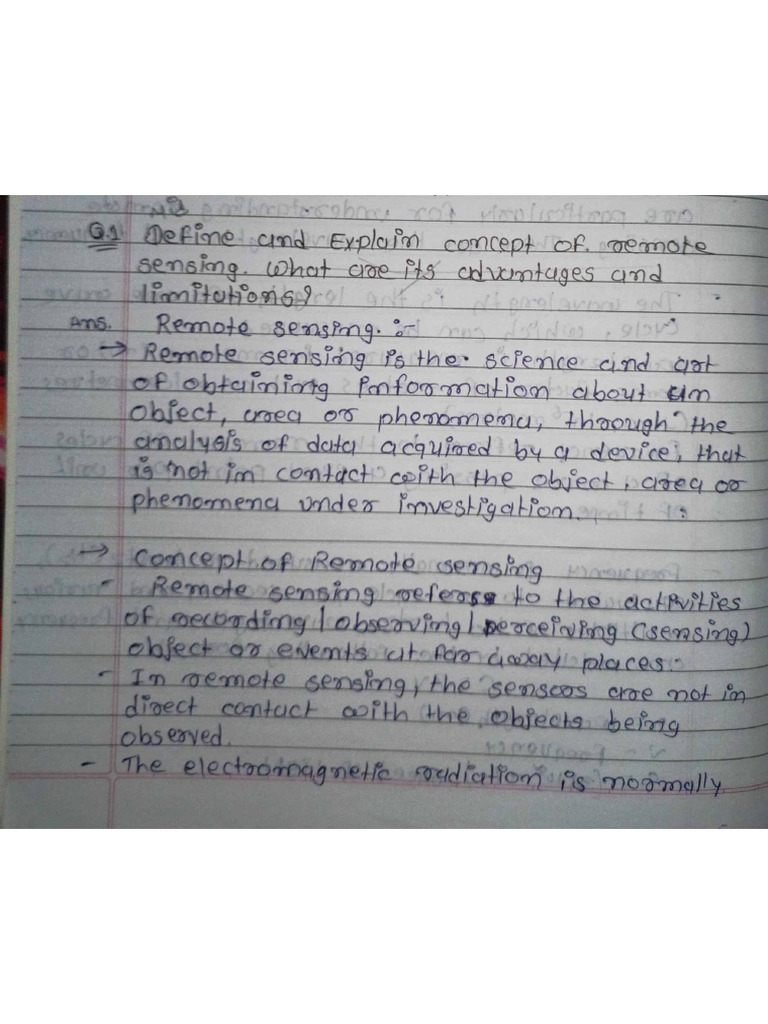 Q.1 Define and Explain concept of remote
sensing. What are its advantages and
limitations?
Ans. Remote sensing :-
→ Remote sensing is the science and art
of obtaining information about an
object, area or phenomena, through the
analysis of data acquired by a device, that
is not in contact with the object, area or
phenomena under investigation.
→ Concept of Remote sensing
- Remote sensing refers to the activities
of recording / observing / perceiving (sensing)
object or events at far away places.
- In remote sensing, the sensors are not in
direct contact with the objects being
observed.
- The electromagnetic radiation is normally